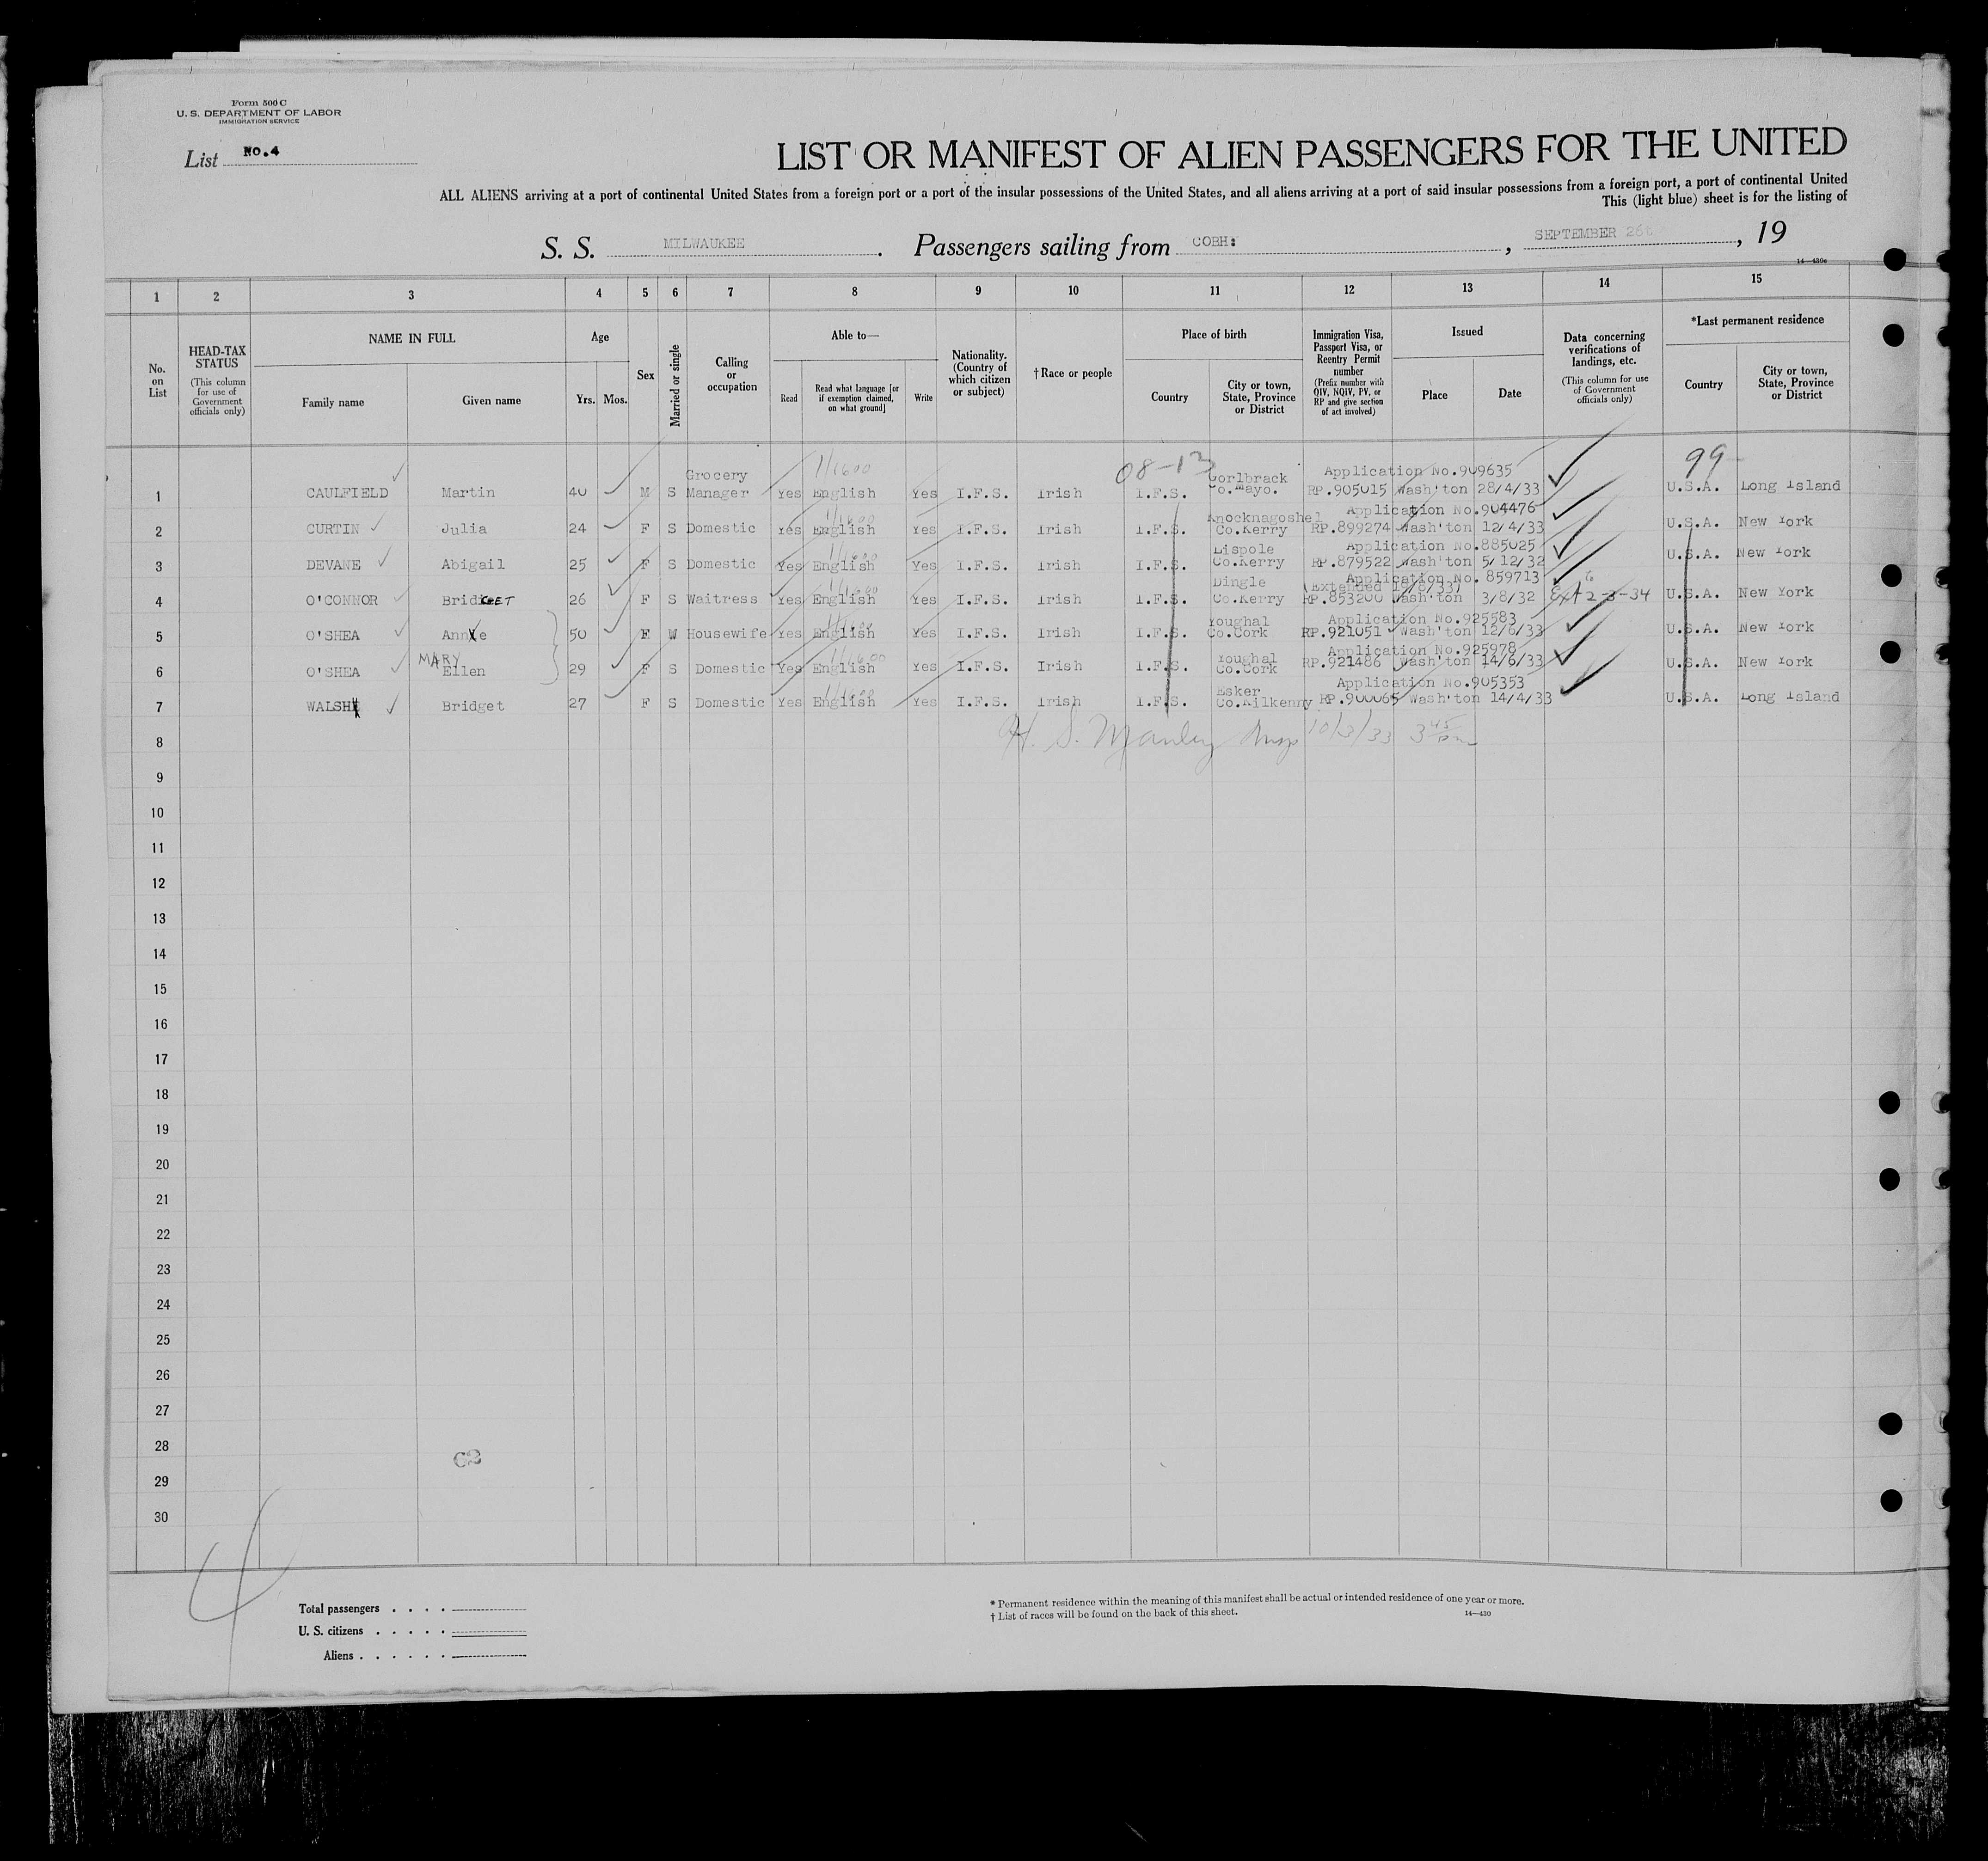 Form 500 C
U. S. DEPARTMENT OF LABOR
IMMIGRATION SERVICE
List No.4
LIST OR MANIFEST OF ALIEN PASSENGERS FOR THE UNITED
ALL ALIENS arriving at a port of continental United States from a foreign port or a port of the insular possessions of the United States, and all aliens arriving at a port of said insular possessions from a foreign port, a port of continental United
This (light blue) sheet is for the listing of
S. S. MILWAUKEE. Passengers sailing from COBH: , SEPTEMBER 26 , 19
14—430c
1 2 3 4 5 6 7 8 9 10 11 12 13 14 15
No. on List
HEAD-TAX STATUS (This column for use of Government officials only)
NAME IN FULL
Family name
Given name
Age
Yrs. Mos.
Sex
Married or single
Calling or occupation
Able to—
Read
Read what language [or if exemption claimed, on what ground]
Write
Nationality. (Country of which citizen or subject)
†Race or people
Place of birth
Country
City or town, State, Province or District
Immigration Visa, Passport Visa, or Reentry Permit number (Prefix number with QIV, NQIV, PV, or RP and give section of act involved)
Issued
Place
Date
Data concerning verifications of landings, etc. (This column for use of Government officials only)
*Last permanent residence
Country
City or town, State, Province or District
08-12 99-
Grocery Gorlbrack Application No.909635
1 CAULFIELD Martin 40 M S Manager Yes English Yes I.F.S. Irish I.F.S. Co.Mayo. RP.905015 Wash'ton 28/4/33 U.S.A. Long Island
Knocknagoshel Application No.904476
2 CURTIN Julia 24 F S Domestic Yes English Yes I.F.S. Irish I.F.S. Co.Kerry RP.899274 Wash'ton 12/4/33 U.S.A. New York
Lispole Application No.885025
3 DEVANE Abigail 25 F S Domestic Yes English Yes I.F.S. Irish I.F.S. Co.Kerry RP.879522 Wash'ton 5/12/32 U.S.A. New York
Dingle Application No. 859713
(Extended /6/33)
4 O'CONNOR BridGET 26 F S Waitress Yes English Yes I.F.S. Irish I.F.S. Co.Kerry RP.853200 Wash'ton 3/8/32 Ext to 2-3-34 U.S.A. New York
Youghal Application No.925583
5 O'SHEA Anne 50 F W Housewife Yes English Yes I.F.S. Irish I.F.S. Co.Cork RP.921051 Wash'ton 12/6/33 U.S.A. New York
MARY Youghal Application No.925978
6 O'SHEA Ellen 29 F S Domestic Yes English Yes I.F.S. Irish I.F.S. Co.Cork RP.921486 Wash'ton 14/6/33 U.S.A. New York
Esker Application No.905353
7 WALSH Bridget 27 F S Domestic Yes English Yes I.F.S. Irish I.F.S. Co.Kilkenny RP.900065 Wash'ton 14/4/33 U.S.A. Long Island
8 H. S. Manley 10/3/33 3 45 pm
9
10
11
12
13
14
15
16
17
18
19
20
21
22
23
24
25
26
27
28
62
29
30
4
Total passengers . . . .
U. S. citizens . . . . .
Aliens . . . . . .
* Permanent residence within the meaning of this manifest shall be actual or intended residence of one year or more.
† List of races will be found on the back of this sheet.
14—430